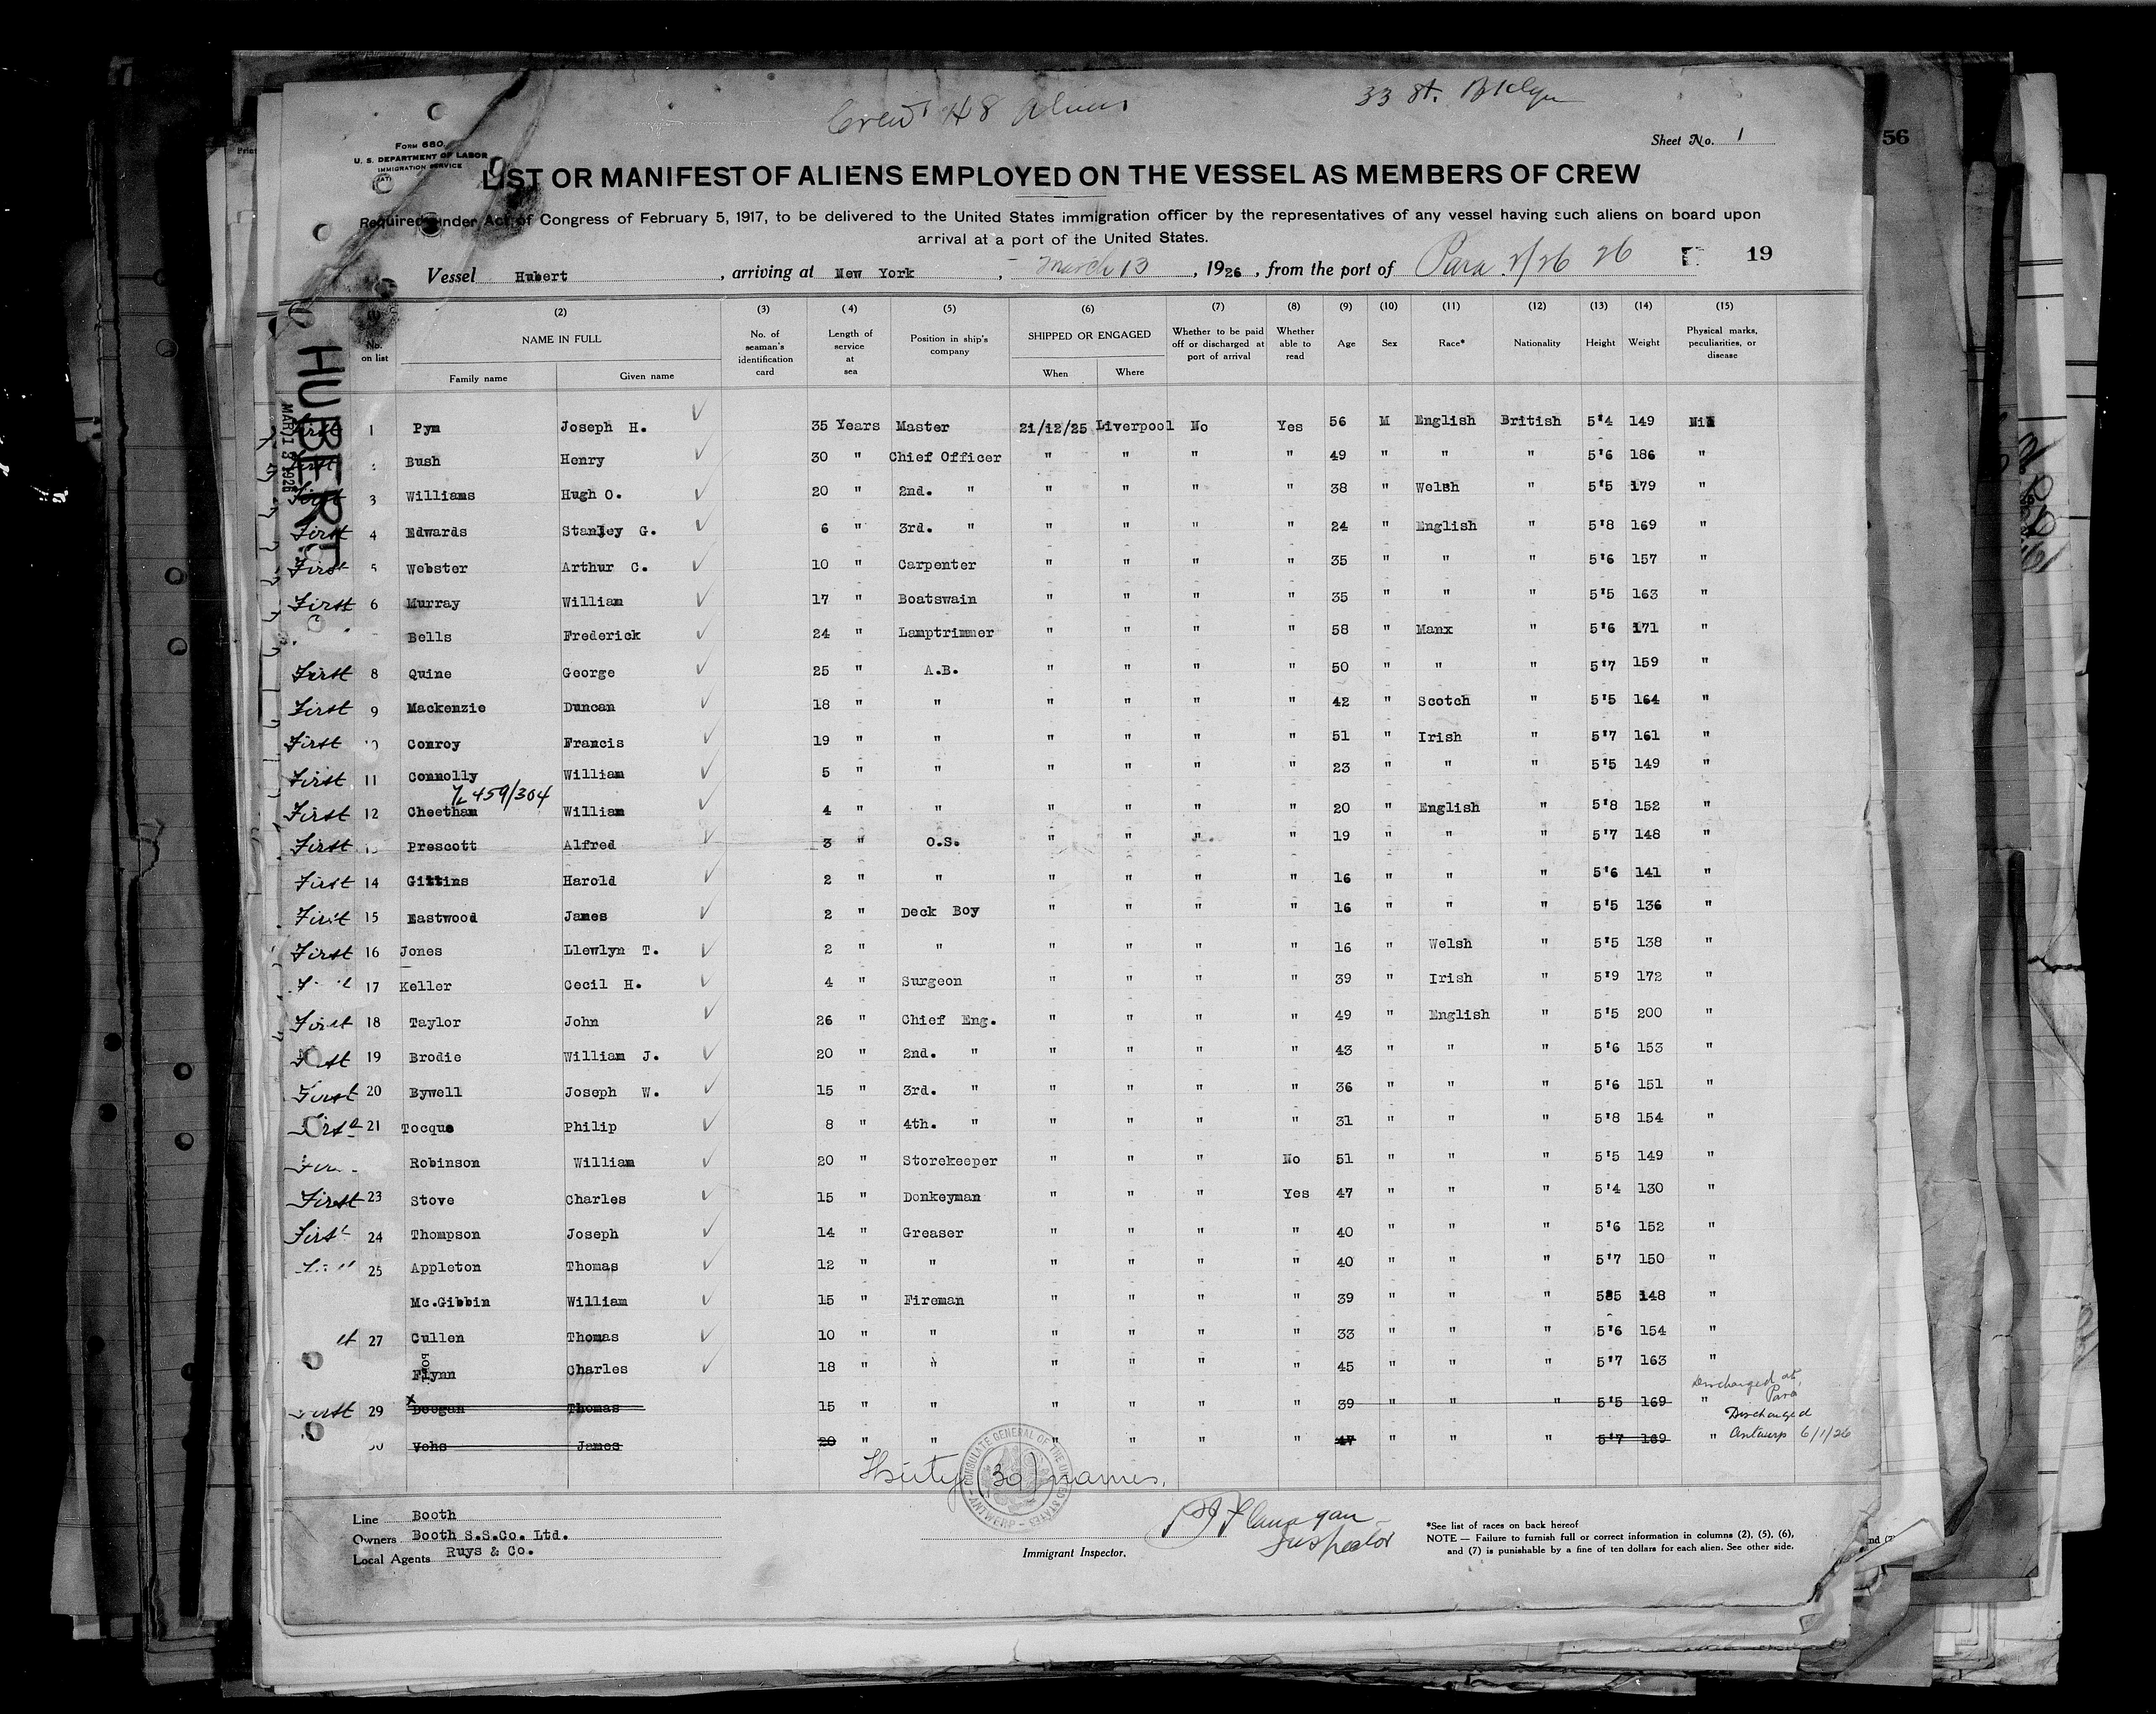 Crew 48 Aliens
33 St. Bklyn
56
Form 680
U. S. DEPARTMENT OF LABOR
IMMIGRATION SERVICE
Sheet No. 1
LIST OR MANIFEST OF ALIENS EMPLOYED ON THE VESSEL AS MEMBERS OF CREW
Required under Act of Congress of February 5, 1917, to be delivered to the United States immigration officer by the representatives of any vessel having such aliens on board upon
arrival at a port of the United States.
Vessel Hubert, arriving at New York, March 13, 1926, from the port of Para 2/26 26 19
HUBERT
MAR 13 1926
(1) (2) (3) (4) (5) (6) (7) (8) (9) (10) (11) (12) (13) (14) (15)
No. on list NAME IN FULL Family name Given name No. of seaman's identification card Length of service at sea Position in ship's company SHIPPED OR ENGAGED When Where Whether to be paid off or discharged at port of arrival Whether able to read Age Sex Race* Nationality Height Weight Physical marks, peculiarities, or disease
First 1 Pym Joseph H. ✓ 35 Years Master 21/12/25 Liverpool No Yes 56 M English British 5'4 149 Nil
First Bush Henry ✓ 30 " Chief Officer " " " " 49 " " " 5'6 186 "
First 3 Williams Hugh O. ✓ 20 " 2nd. " " " " " 38 " Welsh " 5'5 179 "
First 4 Edwards Stanley G. ✓ 6 " 3rd. " " " " " 24 " English " 5'8 169 "
First 5 Webster Arthur C. ✓ 10 " Carpenter " " " " 35 " " " 5'6 157 "
First 6 Murray William ✓ 17 " Boatswain " " " " 35 " " " 5'5 163 "
Bells Frederick ✓ 24 " Lamptrimmer " " " " 58 " Manx " 5'6 171 "
First 8 Quine George ✓ 25 " A.B. " " " " 50 " " " 5'7 159 "
First 9 Mackenzie Duncan ✓ 18 " " " " " " 42 " Scotch " 5'5 164 "
First 10 Conroy Francis ✓ 19 " " " " " " 51 " Irish " 5'7 161 "
First 11 Connolly William ✓ 5 " " " " " " 23 " " " 5'5 149 "
459/304
First 12 Cheetham William ✓ 4 " " " " " " 20 " English " 5'8 152 "
First Prescott Alfred ✓ 3 " O.S. " " " " 19 " " " 5'7 148 "
First 14 Gittins Harold ✓ 2 " " " " " " 16 " " " 5'6 141 "
First 15 Eastwood James ✓ 2 " Deck Boy " " " " 16 " " " 5'5 136 "
First 16 Jones Llewlyn T. ✓ 2 " " " " " " 16 " Welsh " 5'5 138 "
17 Keller Cecil H. ✓ 4 " Surgeon " " " " 39 " Irish " 5'9 172 "
First 18 Taylor John ✓ 26 " Chief Eng. " " " " 49 " English " 5'5 200 "
First 19 Brodie William J. ✓ 20 " 2nd. " " " " " 43 " " " 5'6 153 "
First 20 Bywell Joseph W. ✓ 15 " 3rd. " " " " " 36 " " " 5'6 151 "
First 21 Tocque Philip ✓ 8 " 4th. " " " " " 31 " " " 5'8 154 "
Robinson William ✓ 20 " Storekeeper " " " No 51 " " " 5'5 149 "
First 23 Stove Charles ✓ 15 " Donkeyman " " " Yes 47 " " " 5'4 130 "
First 24 Thompson Joseph ✓ 14 " Greaser " " " " 40 " " " 5'6 152 "
25 Appleton Thomas ✓ 12 " " " " " " 40 " " " 5'7 150 "
Mc.Gibbin William ✓ 15 " Fireman " " " " 39 " " " 585 148 "
27 Cullen Thomas ✓ 10 " " " " " " 33 " " " 5'6 154 "
Flynn Charles ✓ 18 " " " " " " 45 " " " 5'7 163 "
First 29 x Deegan Thomas 15 " " " " " " 39 " " " 5'5 169 " Discharged at Para
30 Vohs James 20 " " " " " " 47 " " " 5'7 169 " Discharged Antwerp 6/1/26
Thirty (30) names.
CONSULATE GENERAL OF THE UNITED STATES - ANTWERP
Line Booth
Owners Booth S.S.Co. Ltd.
Local Agents Ruys & Co.
Flanagan
Inspector
Immigrant Inspector.
*See list of races on back hereof
NOTE — Failure to furnish full or correct information in columns (2), (5), (6),
and (7) is punishable by a fine of ten dollars for each alien. See other side.